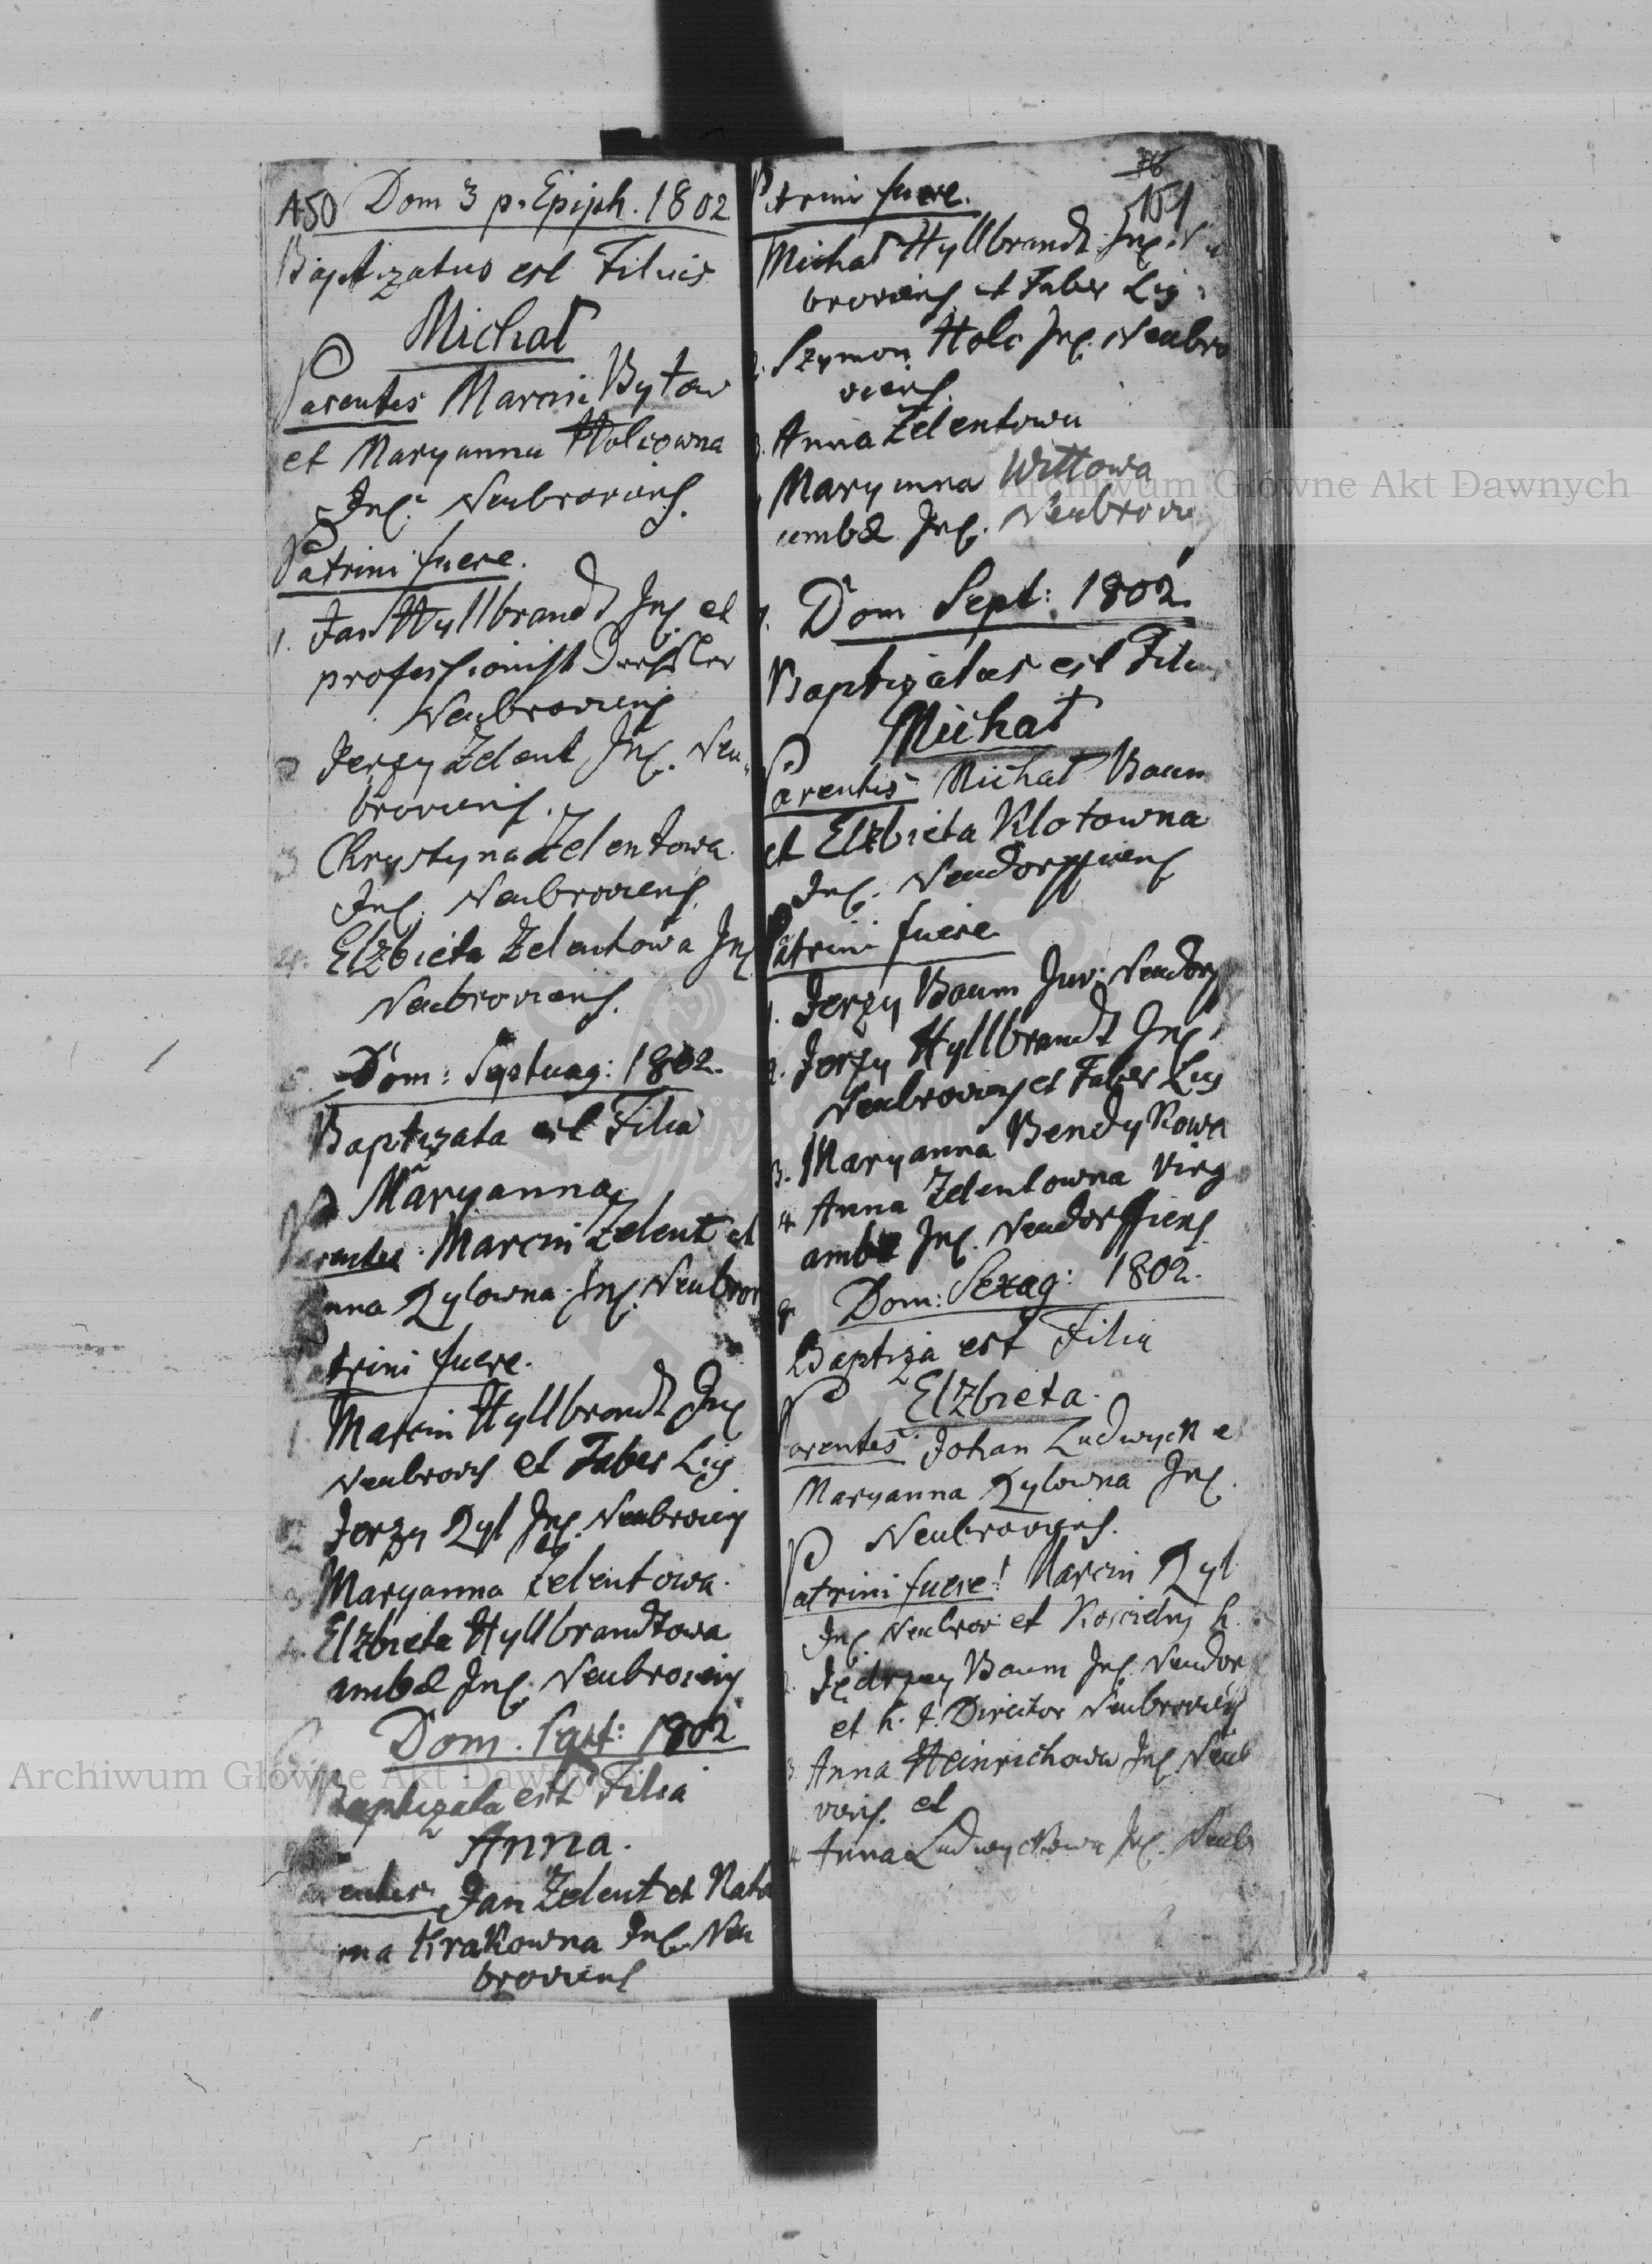 150 Dom 3 p. Epiph. 1802
Baptizatus est Filius
Michał
Parentes Marcin Bytow
et Maryanna Holcowna
Inq. Neubroviens.
Patrini fuere.
1. Jan Hyllbrandt Inq. et
professionist Drechsler
Neubroviens
2 Jerzy Zelent Inq. Neu
broviens.
3 Chrystyna Zelentowa
Inq. Neubroviens.
4. Elzbieta Zelentowa Inq
Neubroviens.
5. Dom: Septuag: 1802.
Baptizata est Filia
Maryanna
Parentes Marcin Zelent et
Anna Rylowna Inq. Neubrov
trini fuere.
1 Marcin Hyllbrandt Inq
Neubrovs et Faber Lig
2 Jerzy Ryl Inq. Neubroviens
3 Maryanna Zelentowa.
4. Elzbieta Hyllbrandtowa
ambæ Inq. Neubroviens
6. Dom. Sept: 1802
Baptizata est Filia
Anna.
Parentes Jan Zelent et Kata
rna Krakowna Inq. Neu
broviens
76
151
Patrini fuere.
Michał Hyllbrandt Inq. Neu
broviens et Faber Lig
2. Szymon Holc Inq. Neubro
viens.
3. Anna Zelentowa
Maryanna Wittowa
ambæ Inq. Neubrovie
7. Dom Sept: 1802.
Baptizatus est Filius
Michał
Parentes Michał Baum
et Elzbieta Klotowna
Inq. Neudorffiens
Patrini fuere
1. Jerzy Baum Juv: Neudorf
2. Jerzy Hyllbrandt Inq.
Neubroviens et Faber Lig
3. Maryanna Bendykowa
4 Anna Zelentowna Virg
ambæ Inq. Neudorffiens.
8. Dom: Sexag: 1802.
Baptiza est Filia
Elzbieta.
Parentes Johan Ludwyck e
Maryanna Rylowna Inq.
Neubroviens.
Patrini fuere! Marcin Ryl
Inq. Neubrov et Koscielny h.
Jędrzey Baum Inq. Neudor
et h. t. Director Neubroviens
3 Anna Heinrichowa Inq. Neub
roviens. et
4 Anna Ludwyckowa Inq. Neub
Archiwum Główne Akt Dawnych
Archiwum Główne Akt Dawnych